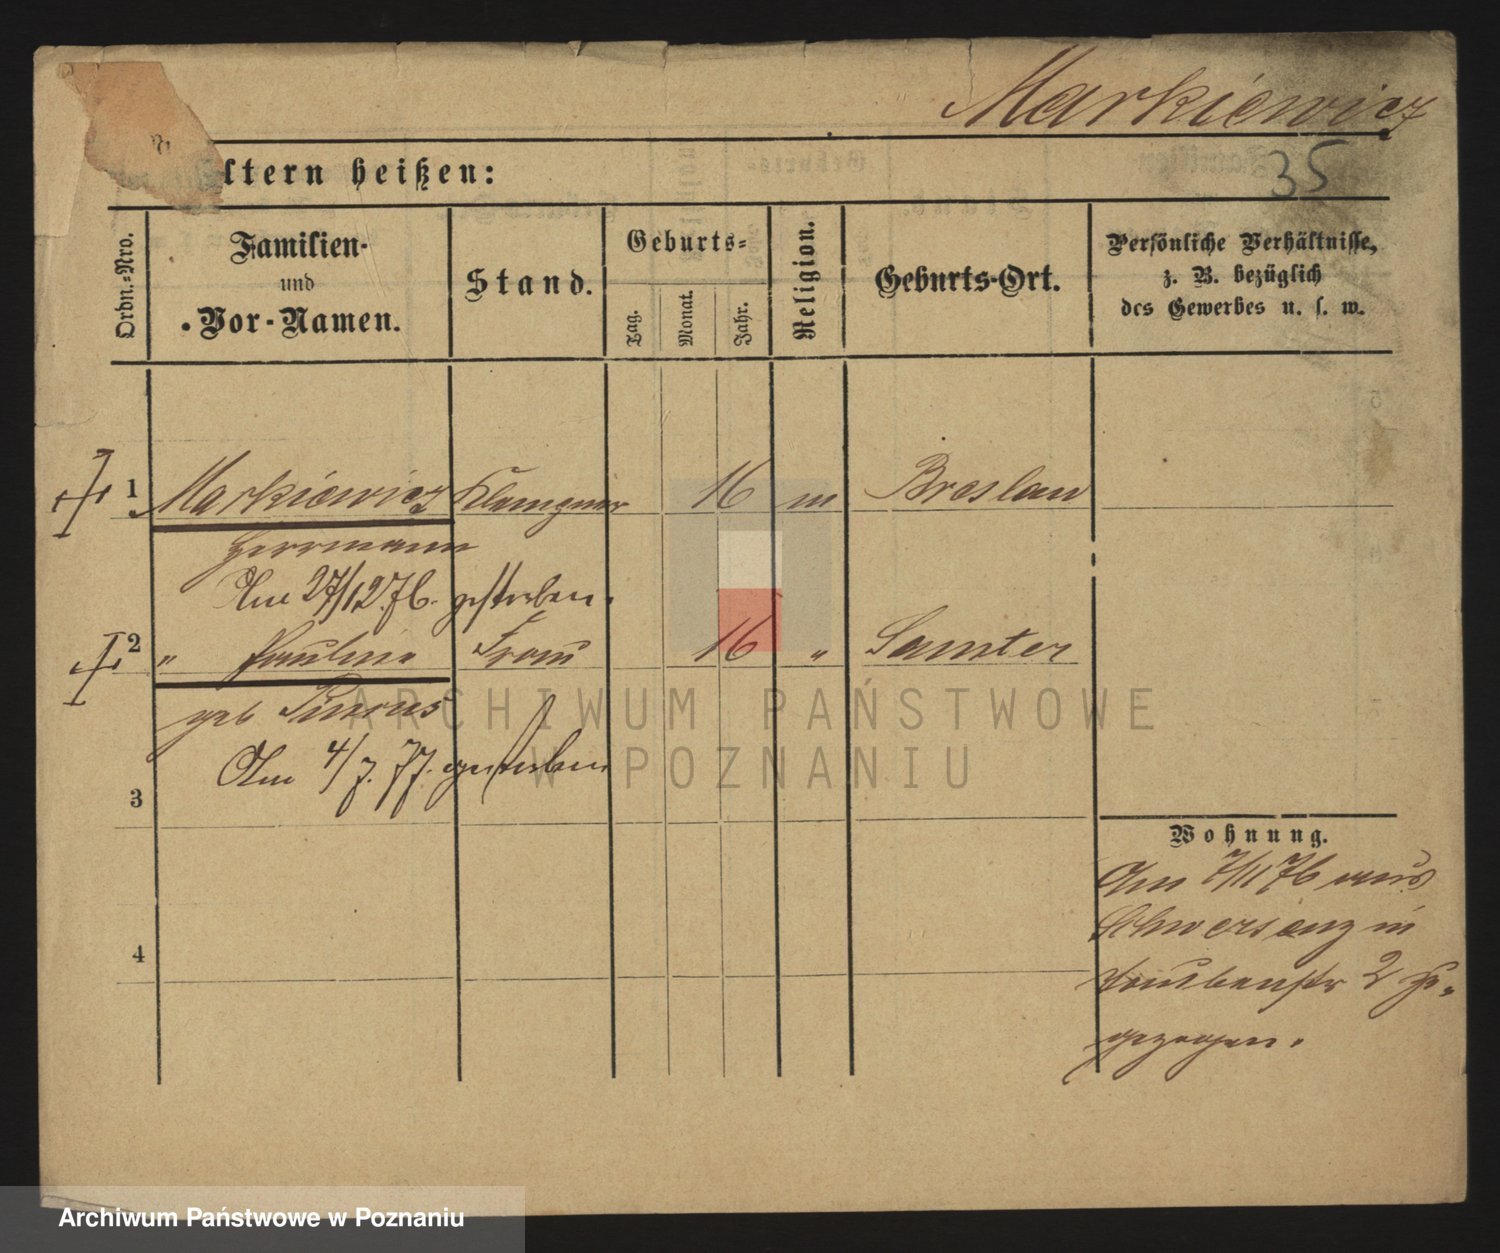 Markiewicz
35
ltern heißen:
Ordn.-Nro.
Familien-
und
Vor-Namen.
Stand.
Geburts-
Tag.
Monat.
Jahr.
Religion.
Geburts-Ort.
Persönliche Verhältnisse,
z. B. bezüglich
des Gewerbes u. s. w.
1 Markiewicz Klempner 16 m Breslau
Herrmann
Am 27/12.76. gestorben.
2 " Pauline Frau 16 " Samter
geb Pincus
Am 4/7.77. gestorben
3
4
Wohnung.
Am 7/11 76 aus
Schwersenz in
Taubenstr 2 zu-
gezogen.
ARCHIWUM PAŃSTWOWE
W POZNANIU
Archiwum Państwowe w Poznaniu